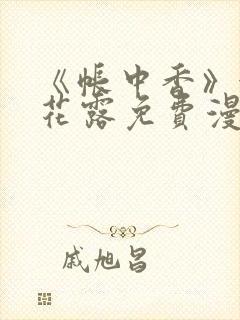 《帐中香》
花露免费漫
戚旭昌